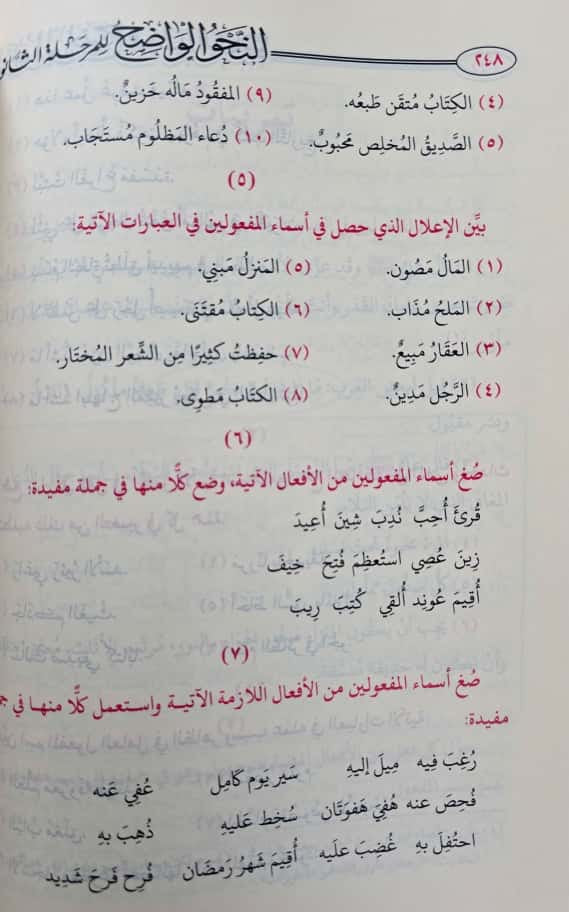 ٢٤٨ النَّحْوُ الوَاضِحُ لِلمَرحَلة الثانو
(٤) الكِتَابُ مُتقَن طَبعُه. (٩) المفقُودُ مَالُه حَزينٌ.
(٥) الصَّديقُ المُخلِص مَحبُوبٌ. (١٠) دُعاء المَظلُوم مُستَجَاب.
(٥)
بيِّن الإعلال الذي حصل في أسماء المفعولين في العبارات الآتية:
(١) المَال مَصُون. (٥) المَنزلُ مَبنِي.
(٢) المَلحُ مُذَاب. (٦) الكِتابُ مُقتَنَى.
(٣) العَقَار مَبِيعٌ. (٧) حفِظتُ كثِيرًا مِن الشِّعر المُختَار.
(٤) الرَّجُل مَدِينٌ. (٨) الكتَابُ مَطوِى.
(٦)
صُغ أسماء المفعولين من الأفعال الآتية، وضع كلًّا منها في جملة مفيدة:
قُرئَ أُحِبَّ نُدِبَ شِينَ أُعِيدَ
زِينَ عُصِي استُعظِمَ فُتِحَ خِيفَ
أُقِيمَ عُوند أُلقِي كُتِبَ رِيبَ
(٧)
صُغ أسماء المفعولين من الأفعال اللازمة الآتية واستعمل كلًّا منها في جم
مفيدة:
رُغِبَ فِيه مِيلَ إليهِ سَير يَوم كَامِل عُفِي عَنه
فُحِصَ عنه هُفِيَ هَفوَتَان سُخِط عَليهِ ذُهِبَ بِهِ
احتُفِلَ بِهِ غُضِبَ علَيه أُقِيمَ شَهرُ رَمضَان فُرِح فَرحَ شَدِيد